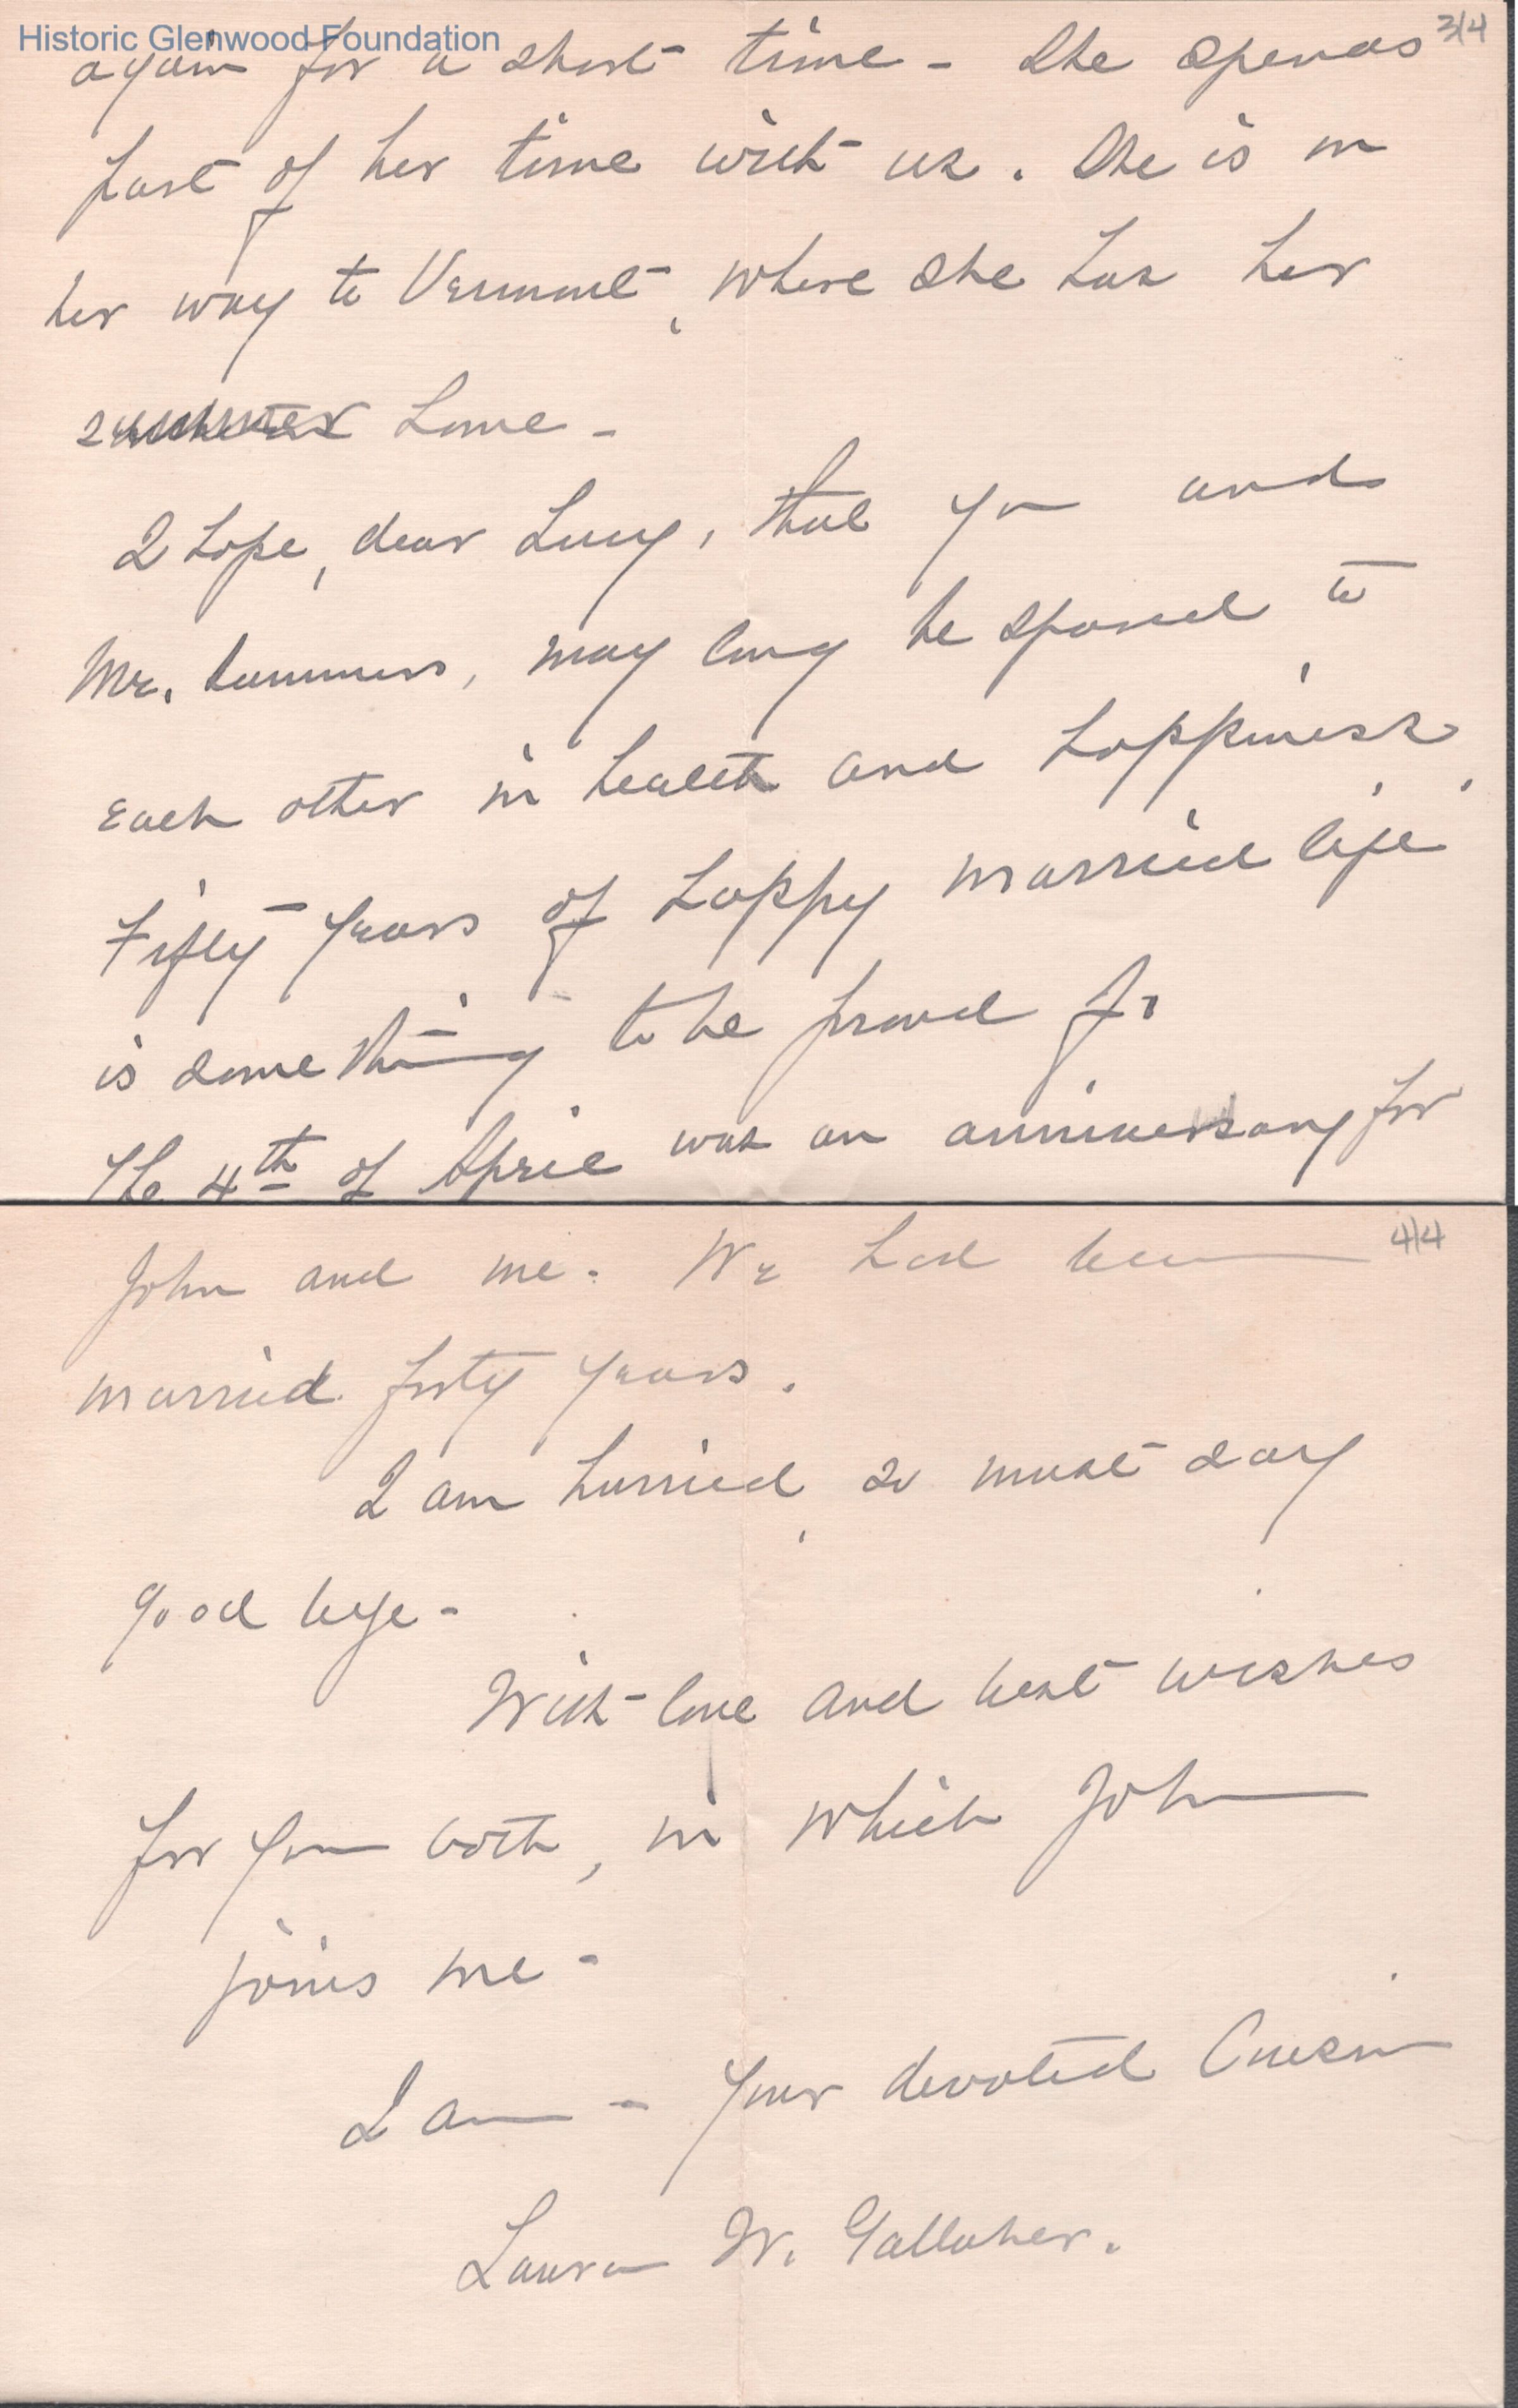 Historic Glenwood Foundation
3/4
again for a short time - She spends
part of her time with us. She is on
her way to Vermont, where she has her
summer home -
I hope, dear Lucy, that you and
Mr. Summers, may long be spared to
each other in health and happiness.
Fifty years of happy married life
is something to be proud of.
The 4th of April was an anniversary for
4/4
John and me. We had been
married forty years.
I am hurried, so must say
good bye -
With love and best wishes
for you both, in which John
joins me -
I am - Your devoted Cousin
Laura W. Gallaher.